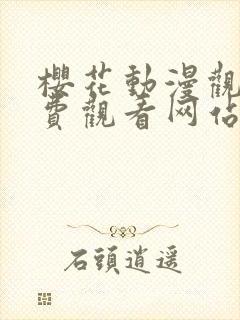 櫻花動漫觀
費觀看网佔
石頭逍遥